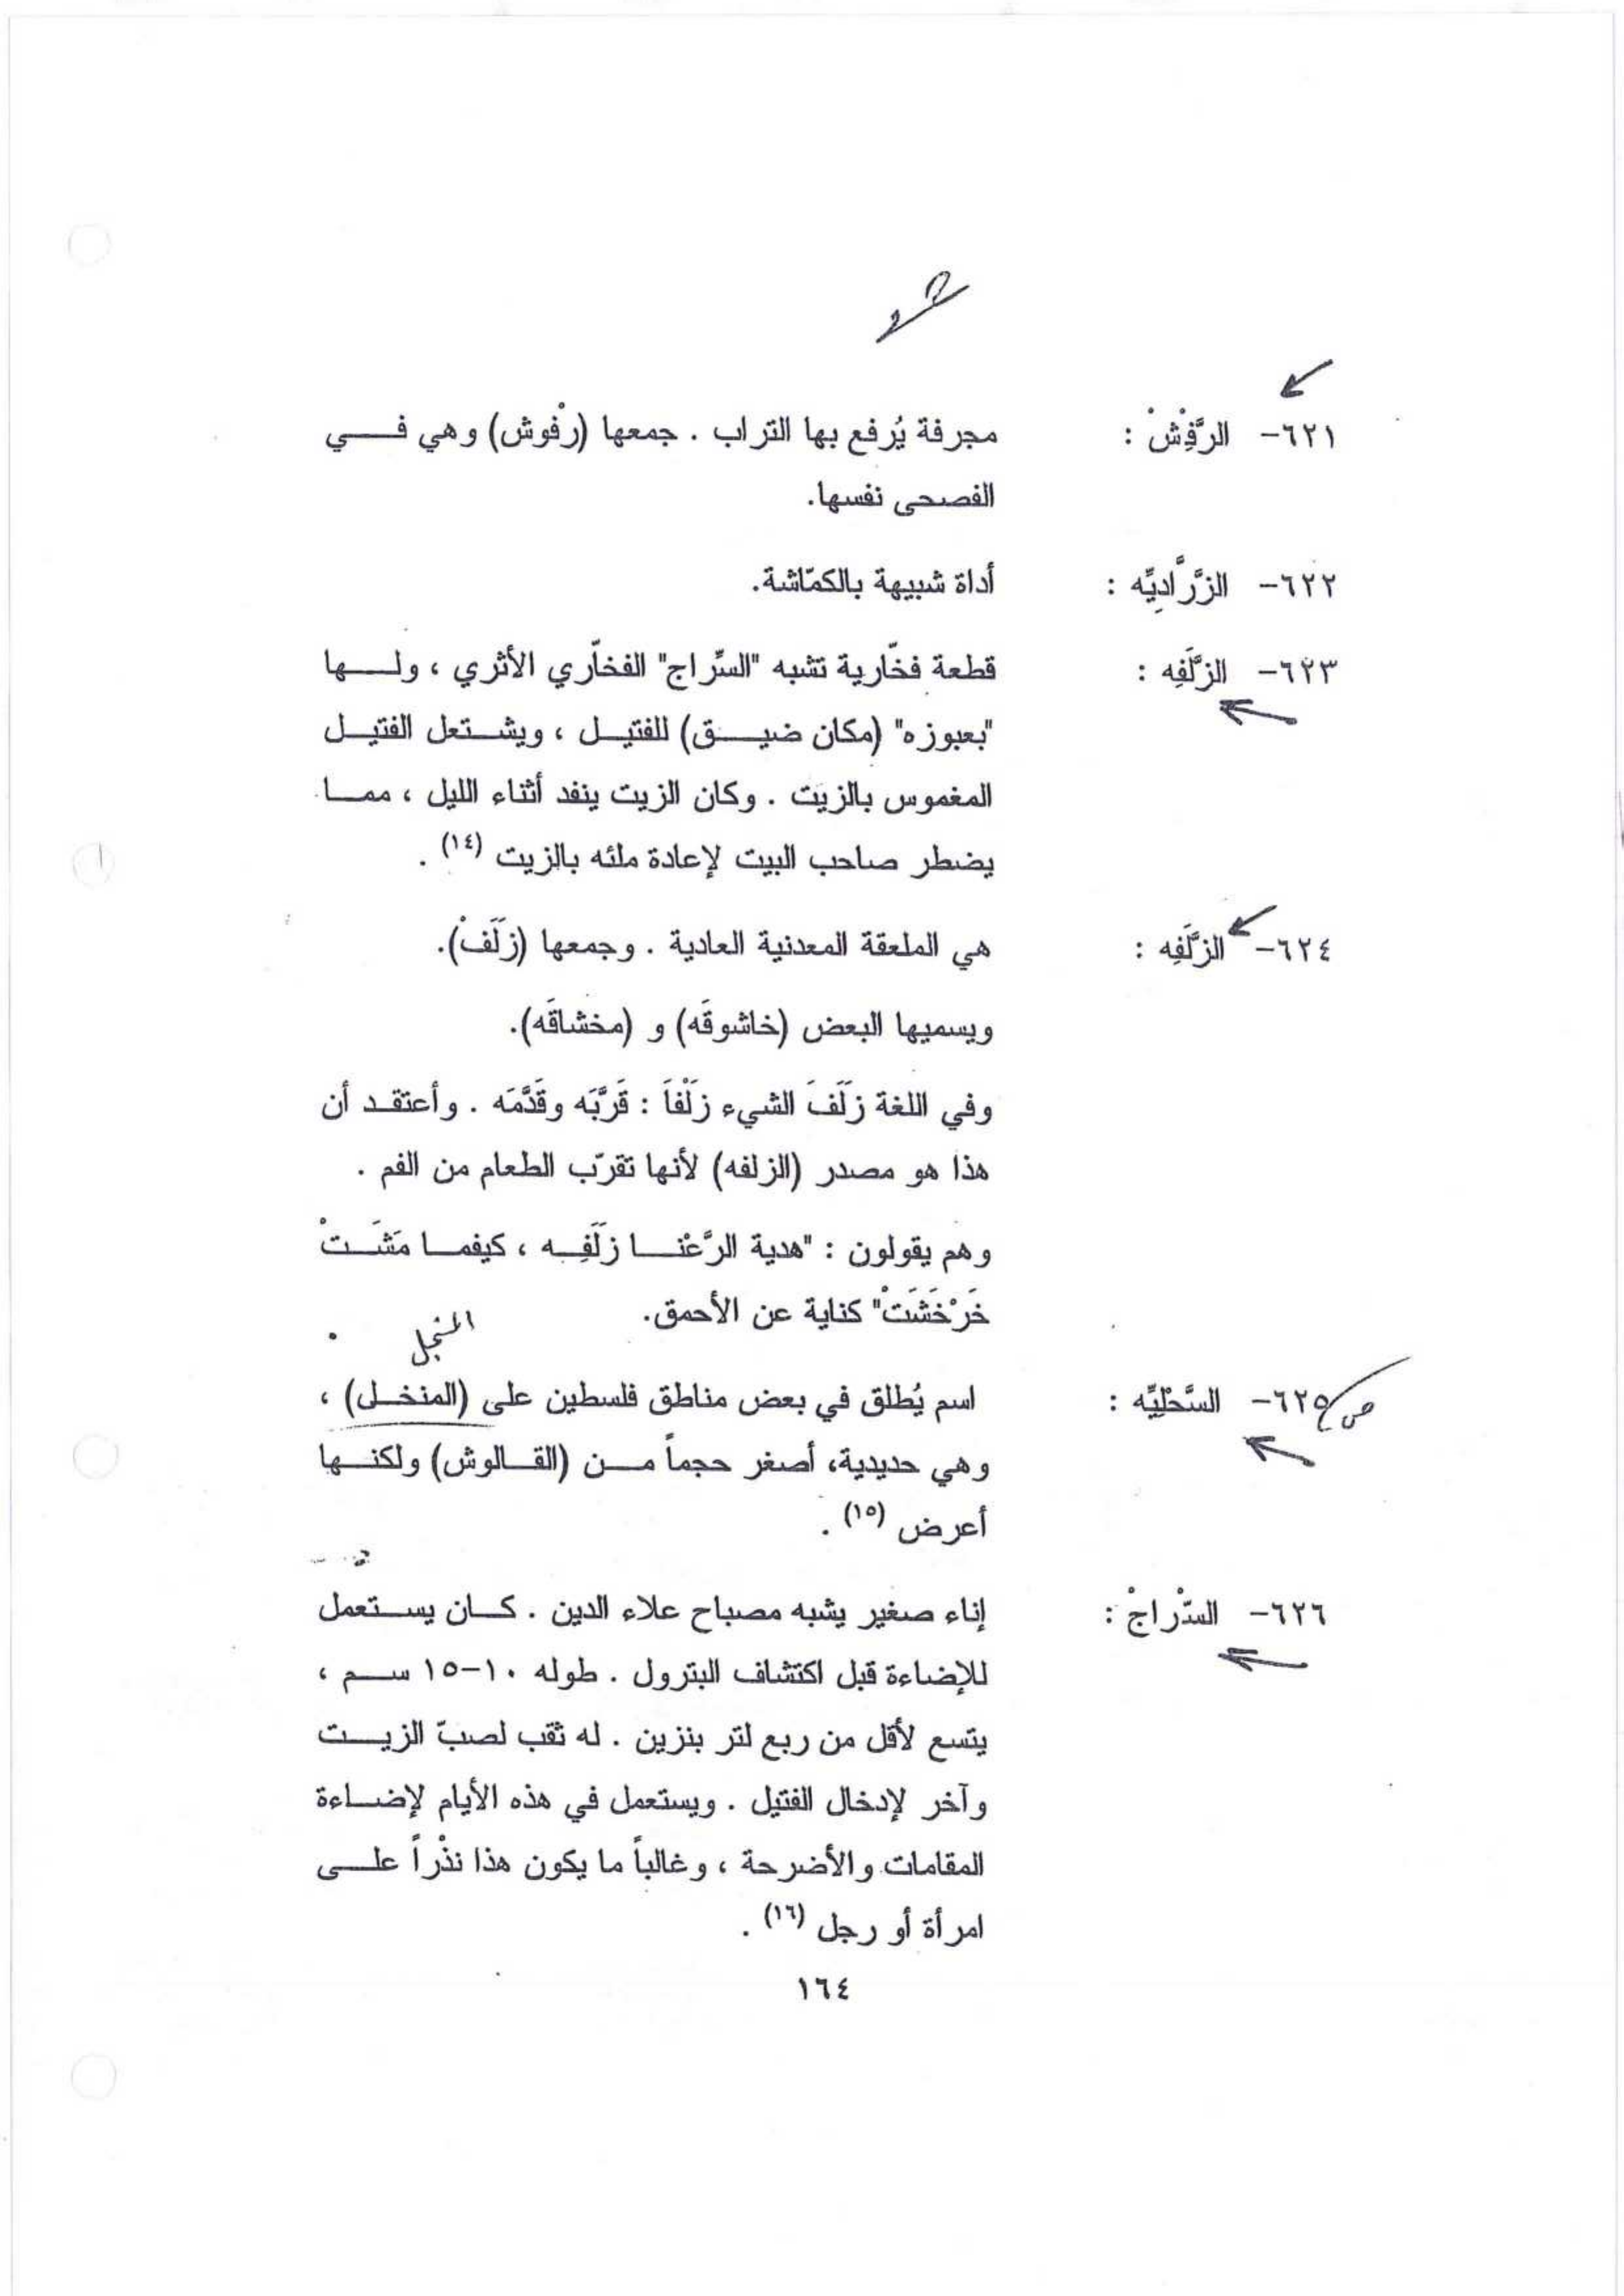 ٦٢١- الرَّفِشْ : مجرفة يُرفع بها التراب . جمعها (رفْوش) وهي في
الفصحى نفسها.
٦٢٢- الزَّرَّاديِّه : أداة شبيهة بالكمّاشة.
٦٢٣- الزَّلَفِه : قطعة فخّارية تشبه "السِّراج" الفخّاري الأثري ، ولها
"بعبوزه" (مكان ضيق) للفتيل ، ويشتعل الفتيل
المغموس بالزيت . وكان الزيت ينفد أثناء الليل ، مما
يضطر صاحب البيت لإعادة ملئه بالزيت (١٤) .
٦٢٤- الزَّلَفِه : هي الملعقة المعدنية العادية . وجمعها (زَلَفْ).
ويسميها البعض (خاشوقَه) و (مخشاقَه).
وفي اللغة زَلَفَ الشيء زَلْفَاً : قَرَّبَه وقَدَّمَه . وأعتقد أن
هذا هو مصدر (الزلفه) لأنها تقرّب الطعام من الفم .
وهم يقولون : "هدية الرَّعْنا زَلَفِه ، كيفما مَشَتْ
خَرْخَشَتْ" كناية عن الأحمق.
المنجل
ص ٦٢٥- السَّحْلِيِّه : اسم يُطلق في بعض مناطق فلسطين على (المنخل) ،
وهي حديدية، أصغر حجماً من (القالوش) ولكنها
أعرض (١٥) .
٦٢٦- السّْراجْ : إناء صغير يشبه مصباح علاء الدين . كان يستعمل
للإضاءة قبل اكتشاف البترول . طوله ١٠-١٥ سم ،
يتسع لأقل من ربع لتر بنزين . له ثقب لصبّ الزيت
وآخر لإدخال الفتيل . ويستعمل في هذه الأيام لإضاءة
المقامات والأضرحة ، وغالباً ما يكون هذا نذْراً على
امرأة أو رجل (١٦) .
١٦٤